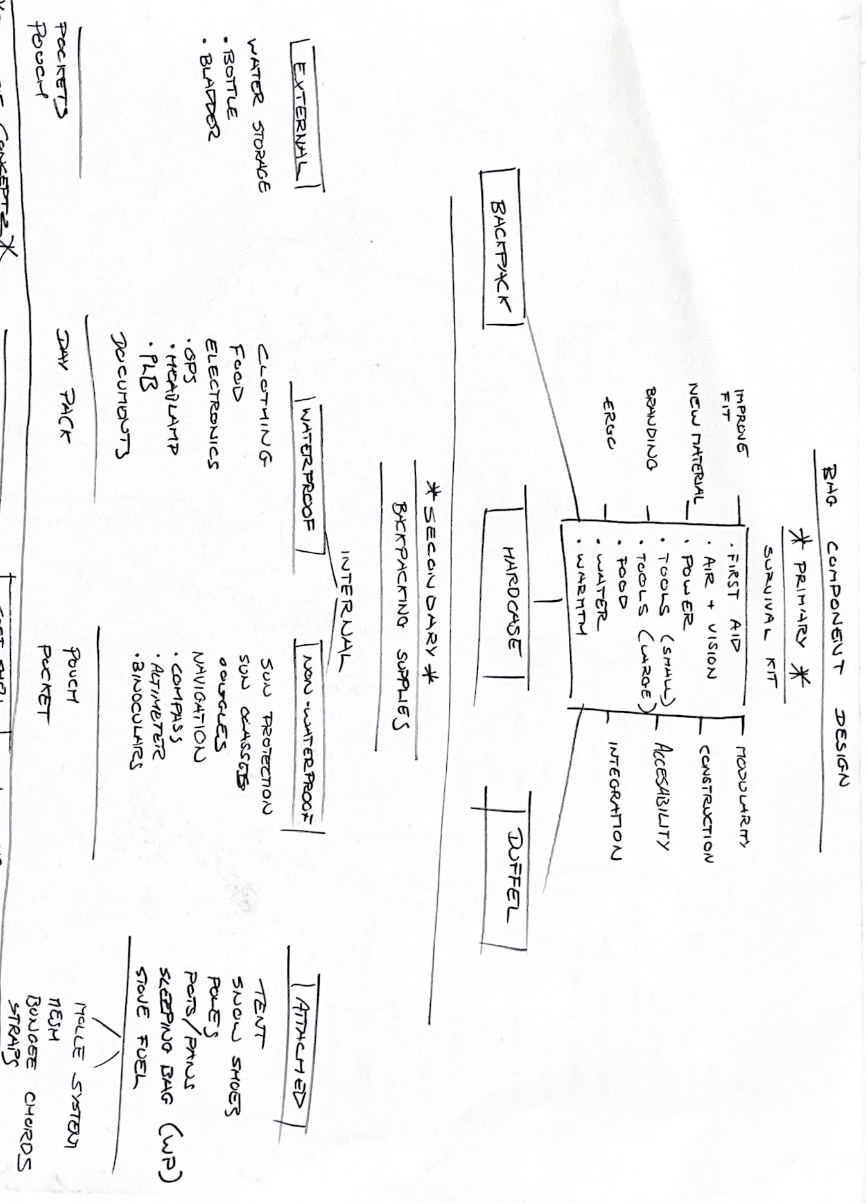 BAG COMPONENT DESIGN
* PRIMARY *
SURVIVAL KIT
IMPROVE FIT
NEW MATERIAL
BRANDING
ERGO
· FIRST AID
· AIR + VISION
· POWER
· TOOLS (SMALL)
· TOOLS (LARGE)
· FOOD
· WATER
· WARMTH
MODULARITY
CONSTRUCTION
ACCESABILITY
INTEGRATION
BACKPACK
HARDCASE
DUFFEL
* SECONDARY *
BACKPACKING SUPPLIES
INTERNAL
EXTERNAL
WATER STORAGE
· BOTTLE
· BLADDER
POCKETS
POUCH
WATERPROOF
CLOTHING
FOOD
ELECTRONICS
· GPS
· HEADLAMP
· PLB
DOCUMENTS
DAY PACK
NON-WATERPROOF
SUN PROTECTION
SUN GLASSES
GOGGLES
NAVIGATION
· COMPASS
· ALTIMETER
· BINOCULARS
POUCH
POCKET
ATTACHED
TENT
SNOW SHOES
POLES
POTS/PANS
SLEEPING BAG (WP)
STOVE FUEL
MOLLE SYSTEM
MESH
BUNGEE CHORDS
STRAPS